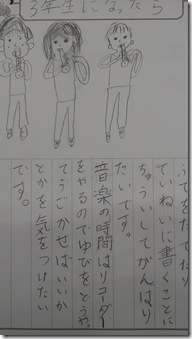 3年生になったら
をたてたり
ていねいに書くことに
ちゅういしてがんばり
たいです。
音楽の時間はリコーダー
をやるのでゆびをどうやっ
てうごかせばいいか
とかを気をつけたい
です。